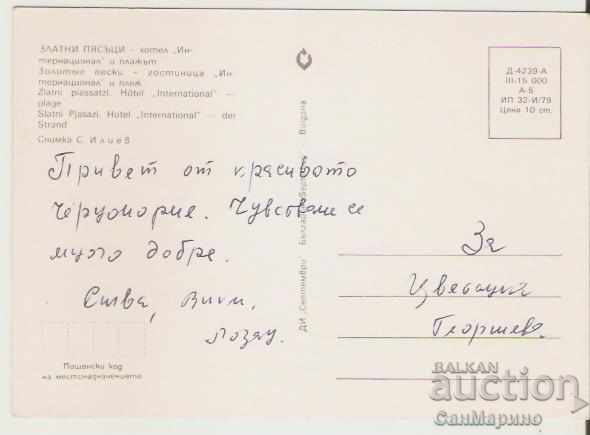 ЗЛАТНИ ПЯСЪЦИ – хотел „Ин-
тернационал" и плажът
Золотые пески – гостиница „Ин-
тернационал" и пляж
Zlatni piassatzi. Hôtel „International" —
plage
Slatni Pjasazi. Hotel „International" — der
Strand
Снимка С. Илиев
Привет от красивото
Черноморие. Чувстваме се
много добре.
Пощенски код
на местоназначението
ДИ „Септември" България Bulgaria
Д-4239-А
III-15 000
А-6
ИП 32-И/79
Цена 10 ст.
За
Цветанка
Георгиева.
BALKAN
auction
СанМарино